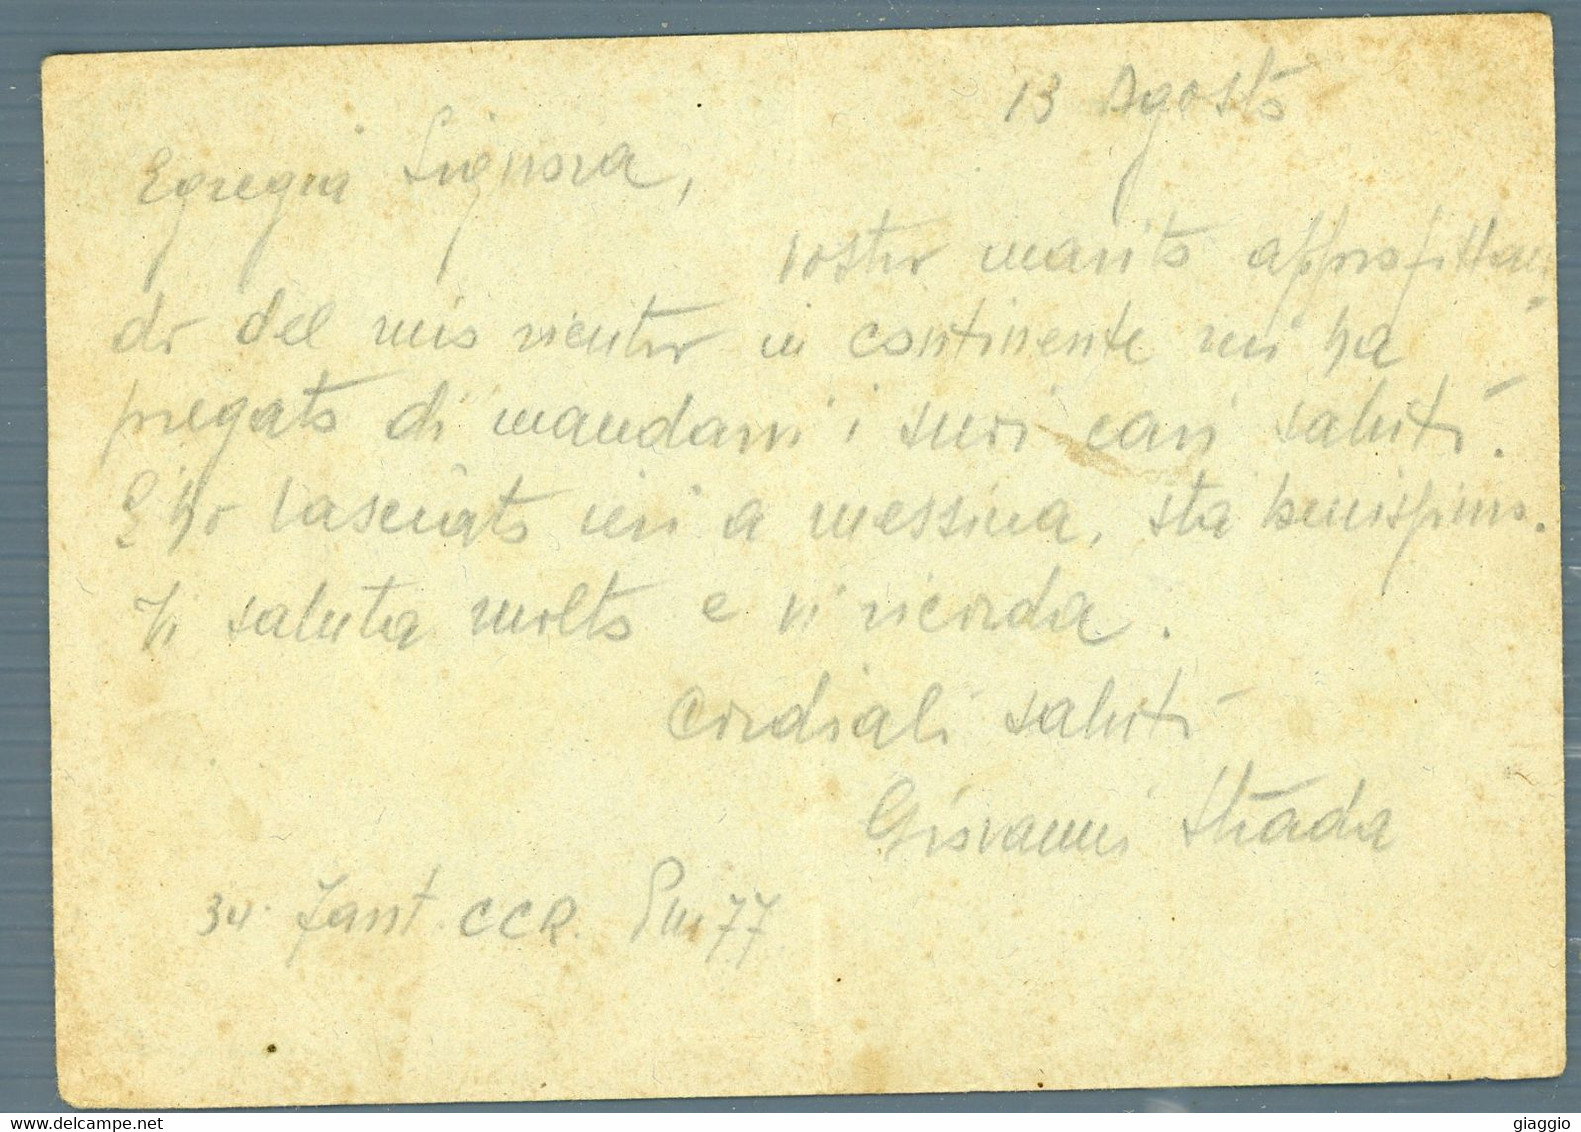 13 Agosto
Egregia Signora,
vostro marito approfittan
do del mio rientro in continente mi ha
pregato di mandarvi i suoi cari saluti.
L'ho lasciato ieri a Messina, sta benissimo.
Vi saluta molto e vi ricorda.
Cordiali saluti
Giovanni Strada
34. Fant. CCR. Pm 77
www.delcampe.net
giaggio